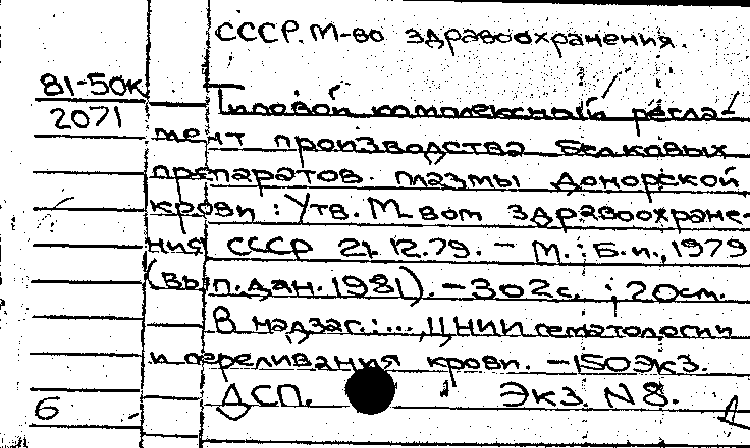 СССР. М-во здравоохранения.
81-50к
2071
Типовой комплексный регла-
мент производства белковых
препаратов плазмы донорской
крови: Утв. М-вом здравоохране-
ния СССР 21.12.79. - М.: Б.и., 1979
(вып. дан. 1981). - 302 с. ; 20 см.
В надзаг.: ..., ЦНИИ гематологии
и переливания крови. - 150 экз.
ДСП. Экз. N 8.
6